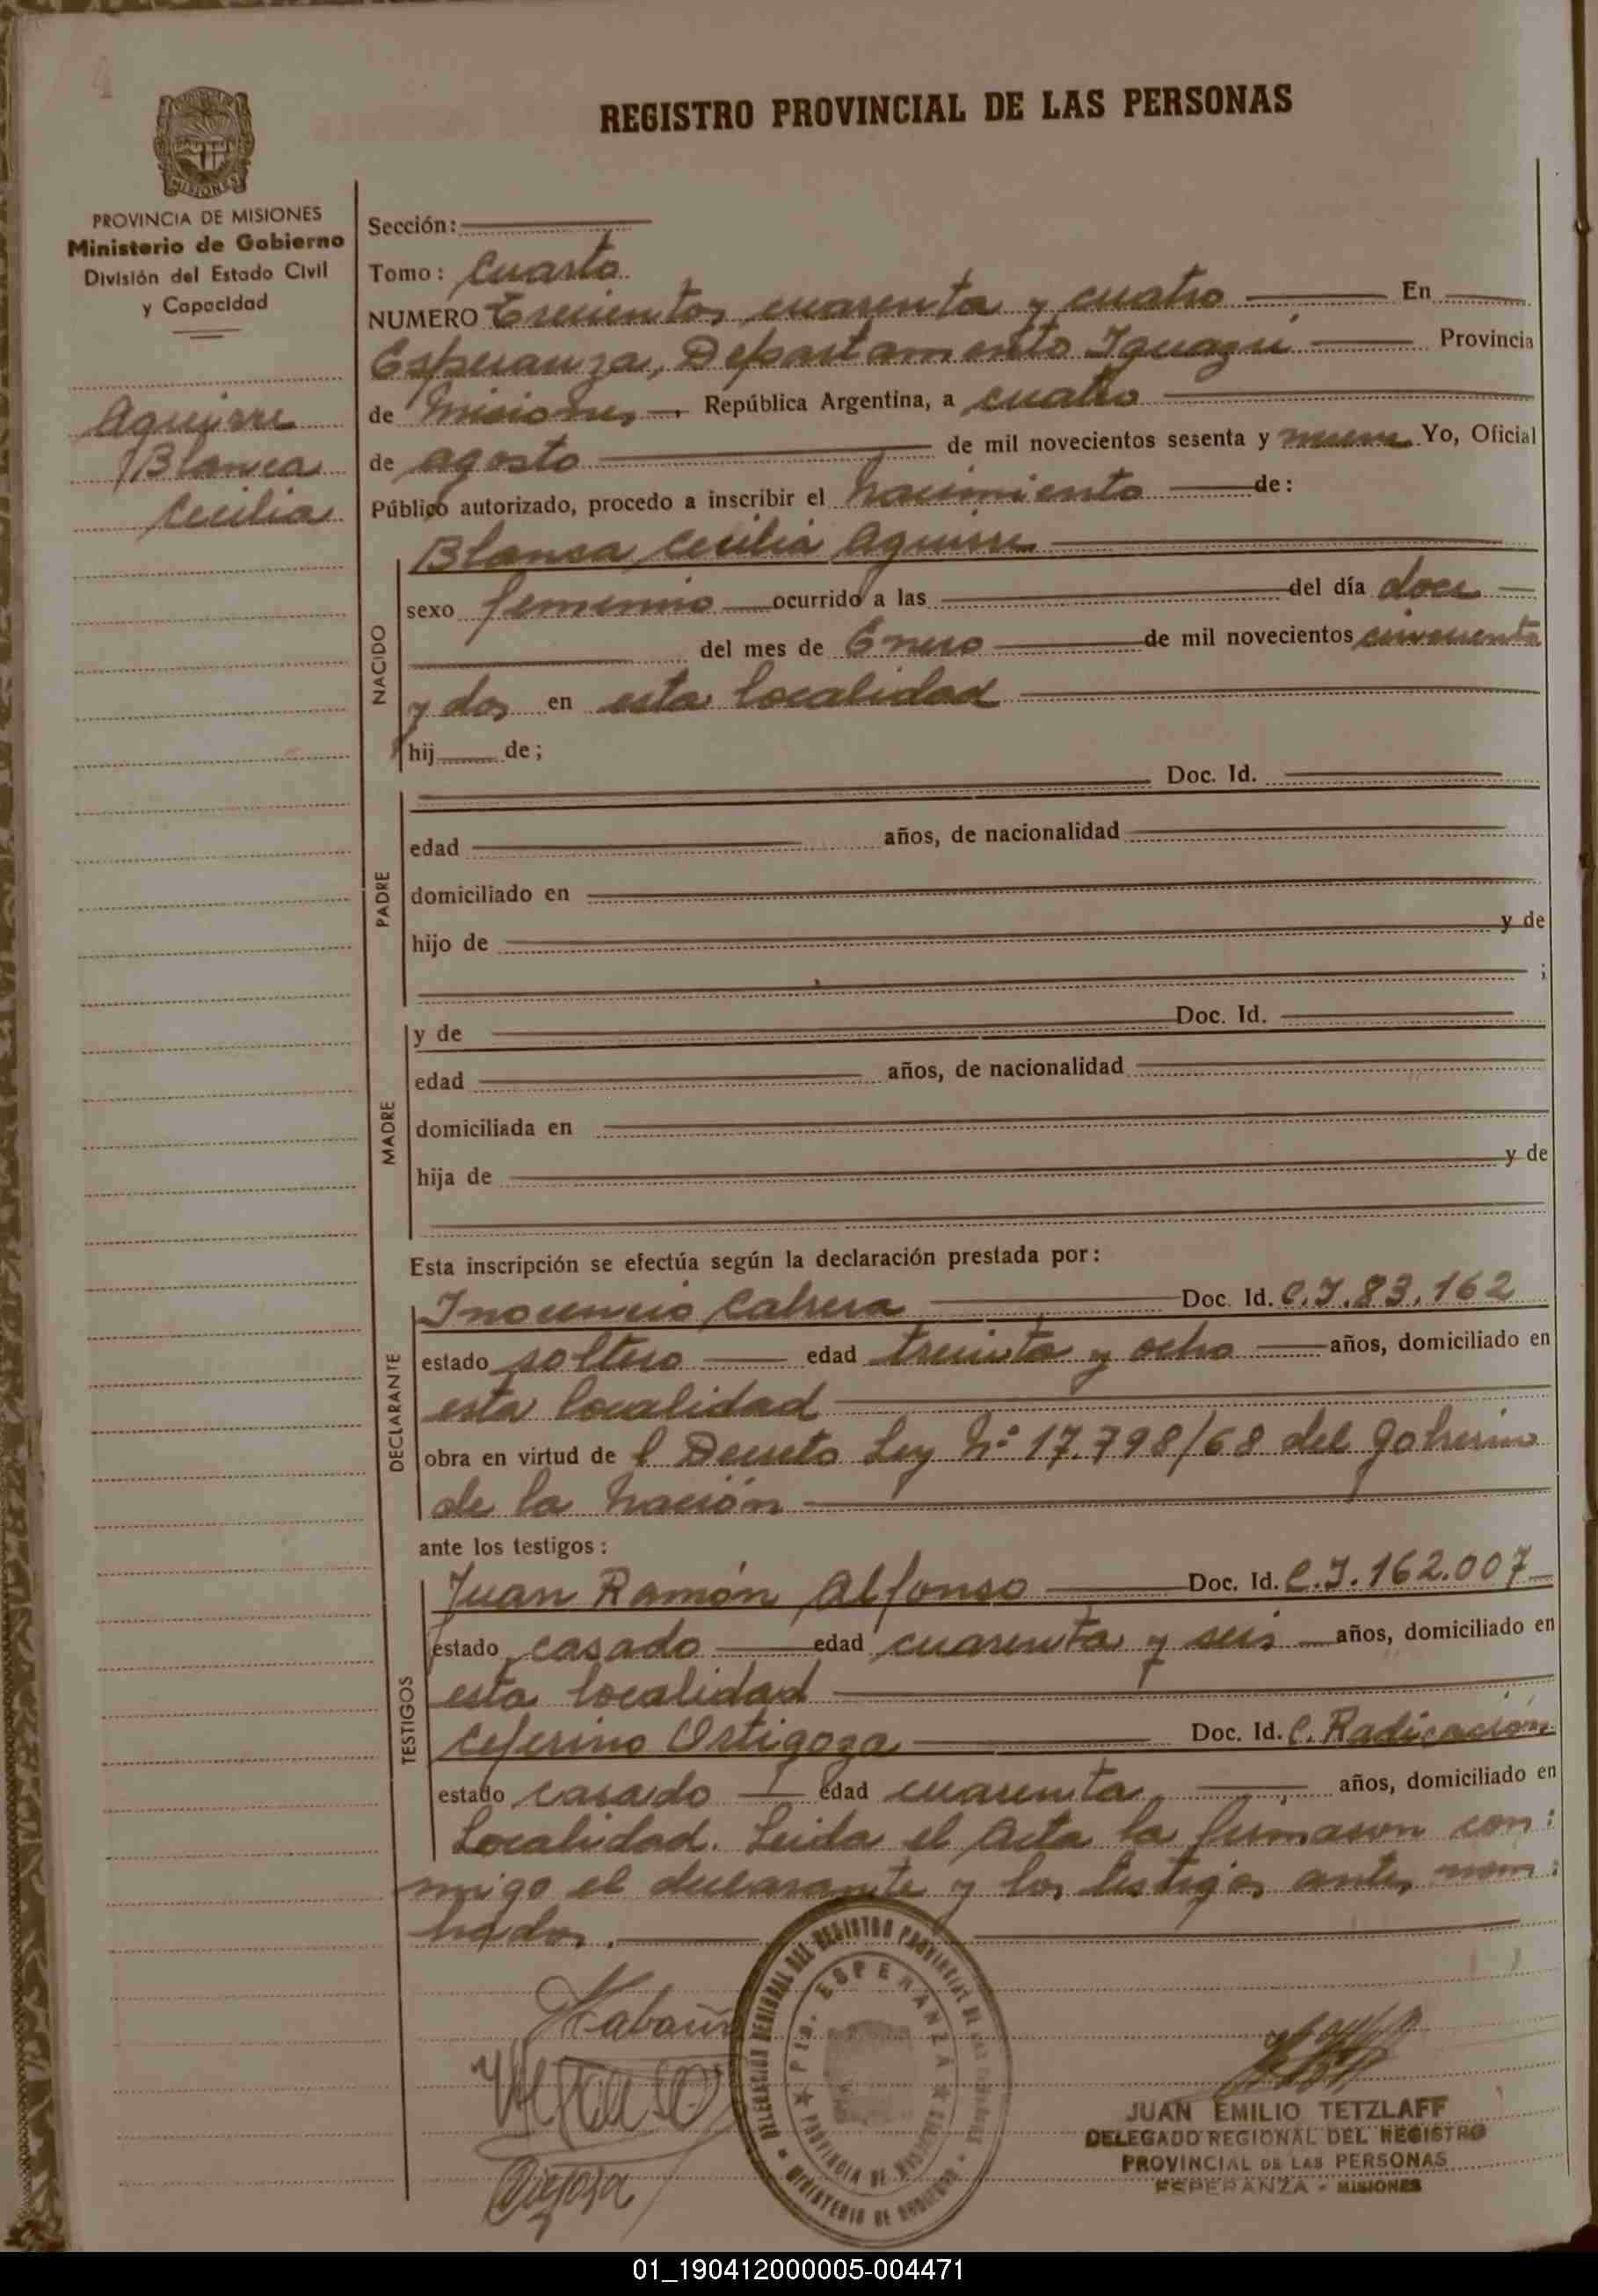 4
REGISTRO PROVINCIAL DE LAS PERSONAS
MISIONES
PROVINCIA DE MISIONES
Ministerio de Gobierno
División del Estado Civil
y Capacidad
Aguirre
Blanca
Cecilia
Sección:
Tomo: Cuarto
NUMERO Trecientos cuarenta y cuatro En
Esperanza, Departamento Iguazú Provincia
de Misiones, República Argentina, a cuatro
de agosto de mil novecientos sesenta y nueve Yo, Oficial
Público autorizado, procedo a inscribir el nacimiento de:
NACIDO
Blanca Cecilia Aguirre
sexo femenino ocurrido a las del día doce
del mes de Enero de mil novecientos cincuenta
y dos en esta localidad
hij de;
PADRE
Doc. Id.
edad años, de nacionalidad
domiciliado en
hijo de y de
;
MADRE
y de Doc. Id.
edad años, de nacionalidad
domiciliada en
hija de y de
Esta inscripción se efectúa según la declaración prestada por:
DECLARANTE
Inocencio Cabrera Doc. Id. C.I. 83.162
estado soltero edad treinta y ocho años, domiciliado en
esta localidad
obra en virtud de l Decreto Ley Nº 17.798/68 del Gobierno
de la Nación
ante los testigos:
TESTIGOS
Juan Ramón Alfonso Doc. Id. C.I. 162.007
estado casado edad cuarenta y seis años, domiciliado en
esta localidad
Ceferino Ortigoza Doc. Id. C. Radicación
estado casado edad cuarenta años, domiciliado en
Localidad. Leida el Acta la firmaron con:
migo el declarante y los testigos antes nom:
brados.
DELEGACION REGIONAL DEL REGISTRO PROVINCIAL DE LAS PERSONAS
Pto. ESPERANZA
PROVINCIA DE MISIONES
MINISTERIO DE GOBIERNO
JUAN EMILIO TETZLAFF
DELEGADO REGIONAL DEL REGISTRO
PROVINCIAL DE LAS PERSONAS
ESPERANZA - MISIONES
01_190412000005-004471